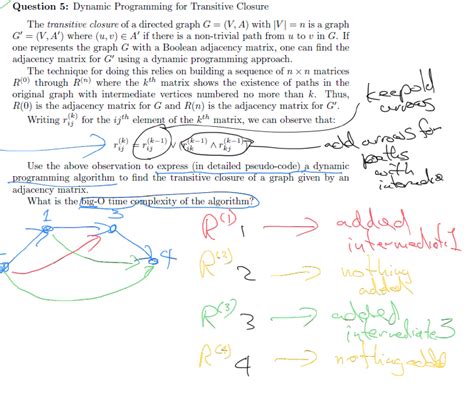 Question 5: Dynamic Programming for Transitive Closure
The transitive closure of a directed graph G = (V, A) with |V| = n is a graph
G′ = (V, A′) where (u, v) ∈ A′ if there is a non-trivial path from u to v in G. If
one represents the graph G with a Boolean adjacency matrix, one can find the
adjacency matrix for G′ using a dynamic programming approach.
The technique for doing this relies on building a sequence of n × n matrices
R^(0) through R^(n) where the k^th matrix shows the existence of paths in the
original graph with intermediate vertices numbered no more than k. Thus,
R(0) is the adjacency matrix for G and R(n) is the adjacency matrix for G′.
Writing r_ij^(k) for the ij^th element of the k^th matrix, we can observe that:
keep old
arrows
r_ij^(k) = r_ij^(k−1) ∨ (r_ik^(k−1) ∧ r_kj^(k−1))
add arrows for
paths
with
Use the above observation to express (in detailed pseudo-code) a dynamic
programming algorithm to find the transitive closure of a graph given by an
adjacency matrix.
What is the big-O time complexity of the algorithm?
1
3
4
R^(1) 1 → added
intermediate 1
R^(2) 2 → nothing
added
R^(3) 3 → added
intermediate 3
R^(4) 4 → nothing added